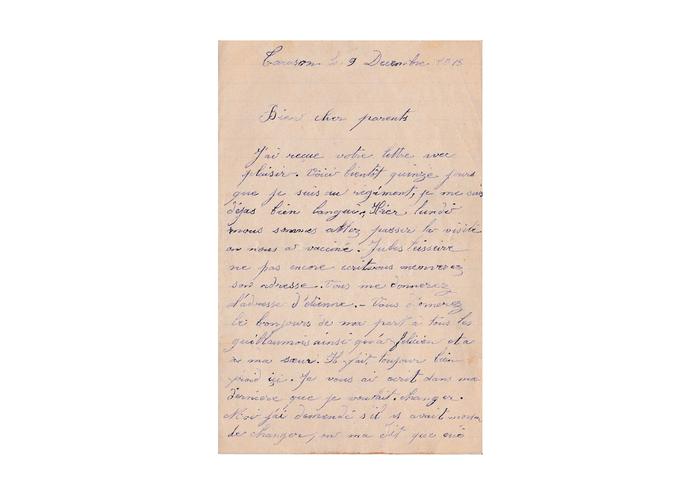 Tarascon le 9 Decembre 1913
Bien cher parents
J'ai reçue votre lettre avec
plaisir. Voici bientot quinze jours
que je suis au regiment, je me suis
dejas bien langui, Hier lundi
nous sommes allez passer la visite
on nous a vacciné. Jules
ne pas encore ecrit vous
son adresse. Vous me donnerez
l'adresse d'etienne. - Vous donnerez
le bonjours de ma part à tous les
guillaumois ainsi qu'à Felicien et a
a ma sœur. Il fait toujour bien
froid içi. Je vous ai ecrit dans ma
derniere que je voulait changer.
Moi j'ai demendé s'il y avait moyen
de changer, on ma dit que